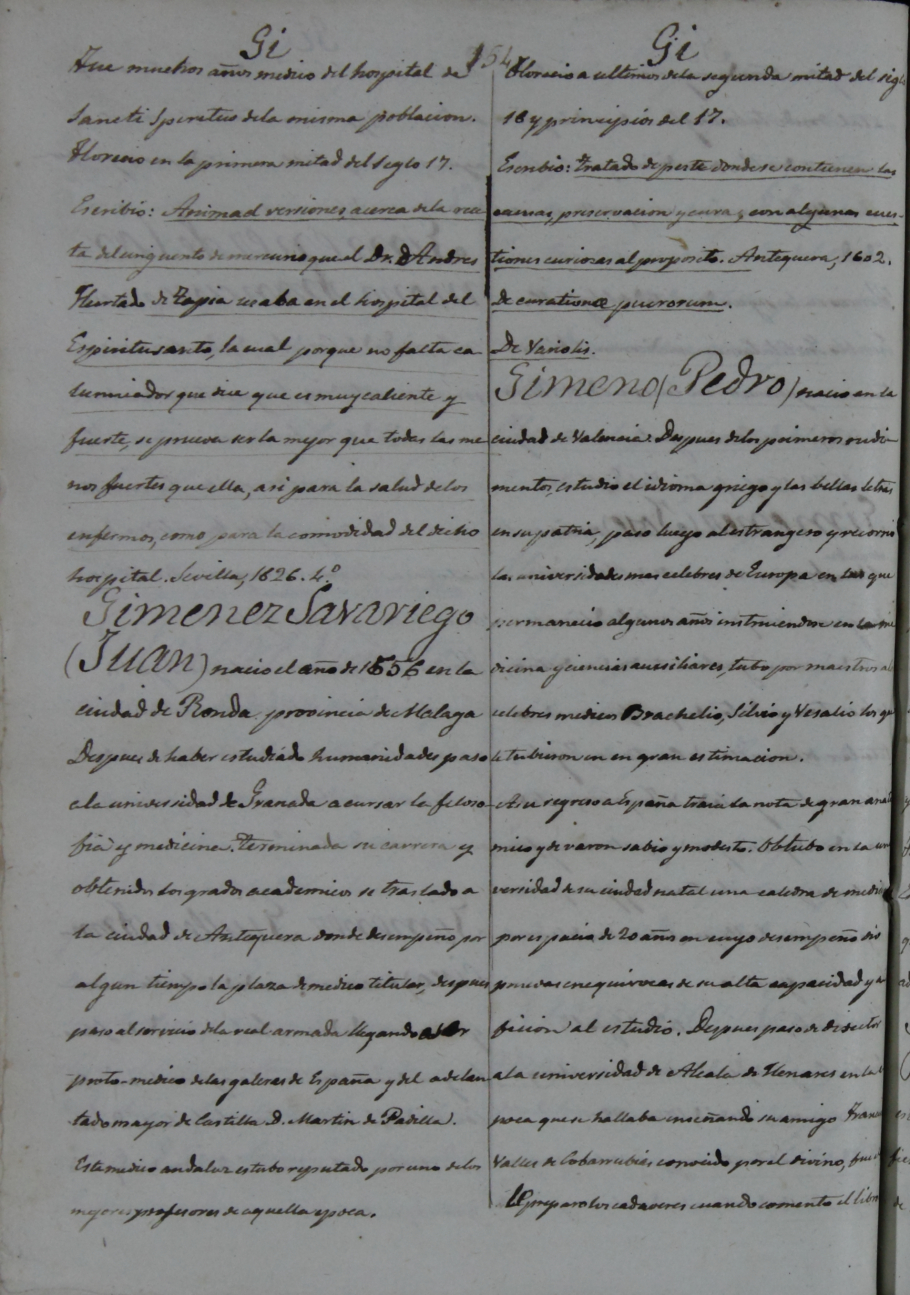 Gi
Fue muchos años medico del hospital de
Sancti Spiritus dela misma poblacion.
Florecio en la primera mitad del Siglo 17.
Escribio: Animad versiones, acerca de la rece
ta del unguento de mercurio que el Dr. D Andres
Hurtado de Tapia usaba en el hospital del
Espiritusanto, la cual porque no falta ca
lumniador que dice que es muy caliente y
fuerte, se prueva ser la mejor que todas las me
nos fuertes que ella, asi para la salud de los
enfermos, como para la comodidad del dicho
hospital. Sevilla, 1626. 4.º
Gimenez Savariego
(Juan) nacio el año de 1556 en la
ciudad de Ronda provincia de Malaga
Despues de haber estudiado humanidades paso
a la universidad de Granada a cursar la filoso
fia y medicina. Terminada su carrera y
obtenidos los grados academicos se traslado a
la ciudad de Antequera donde desempeño por
algun tiempo la plaza de medico titular, despues
paso al servicio dela real armada llegando a ser
proto-medico delas galeras de España y del adelan
tado mayor de Castilla D. Martin de Padilla.
Este medico andaluz estubo reputado por uno delos
mejores profesores de aquella epoca.
154
Gi
Florecio a ultimos dela segunda mitad del sigl
16 y principios del 17.
Escribio: Tratado de peste donde se contienen las
causas, preservacion y cura, con algunas cues-
tiones curiosas al proposito. Antequera, 1602.
De curatione puerorum.
De Variolis.
Gimeno (Pedro) nacio en la
ciudad de Valencia. Despues delos primeros rudi
mentos, estudio el idioma griego y las bellas letras
en su patria, paso luego al estrangero y recorrio
las universidades mas celebres de Europa en las que
permanecio algunos años instruiendose en la me
dicina y ciencias ausiliares, tubo por maestros a
celebres medicos Brachelio, Silvio y Vesalio los qu
le tubieron en en gran estimacion.
A su regreso a España traia la nota de gran ana
mico y de varon sabio y modesto. Obtubo en la un
versidad de su ciudad natal una catedra de medici
por espacio de 20 años en cuyo desempeño dio
pruevas inequivocas de su alta capacidad y a
ficion al estudio. Despues paso de disector
a la universidad de Alcalá de Henares en la e
poca que se hallaba enseñando su amigo Franc
Valles de Cobarrubias conocido por el divino, fue
le preparo los cadaveres cuando comento el libro